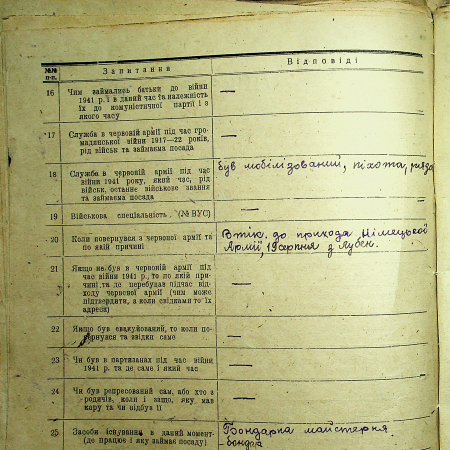 №№ п-п.
Запитання
Відповіді
16
Чим займались батьки до війни
1941 р. і в даний час та належність
їх до комуністичної партії і з
якого часу
—
17
Служба в червоній армії під час гро-
мадянської війни 1917—22 років,
рід військ та займаєма посада
—
18
Служба в червоній армії під час
війни 1941 року, який час, рід
військ, останнє військове звання
та займаєма посада
був мобілізований, піхота,
19
Військова спеціальність (№ ВУС)
—
20
Коли повернувся з червоної армії та
по якій причині
Втік до прихода Німецької
Армії, 19 серпня з Лубен.
21
Якщо не був в червоній армії під
час війни 1941 р., то по якій при-
чині та де перебував підчас від-
ходу червоної армії (чим може
підтвердити, а коли свідками то їх
адреси)
—
22
Якщо був евакуйований, то коли по-
вернувся та звідки саме
—
23
Чи був в партизанах під час війни
1941 р. та де саме і який час
—
24
Чи був репресований сам, або хто з
родичів, коли і защо, яку мав
кару та чи відбув її
—
25
Засоби існування в даний момент-
(де працює і яку займає посаду)
Бондарна майстерня —
бондар